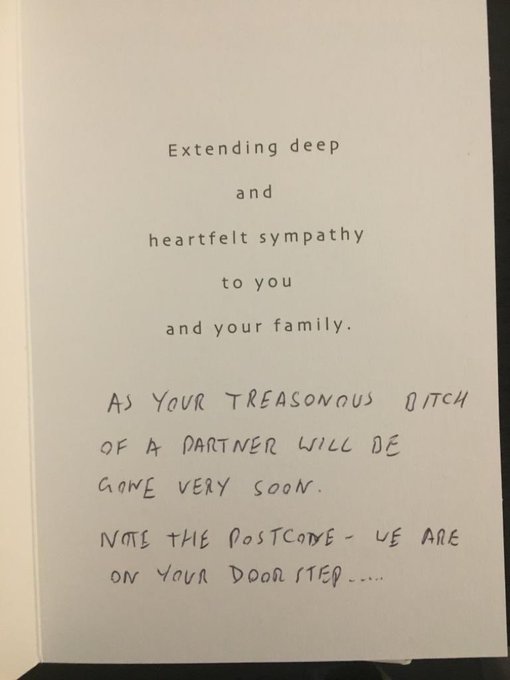 Extending deep
and
heartfelt sympathy
to you
and your family.
AS YOUR TREASONOUS BITCH
OF A PARTNER WILL BE
GONE VERY SOON.
NOTE THE POSTCODE - WE ARE
ON YOUR DOOR STEP.....